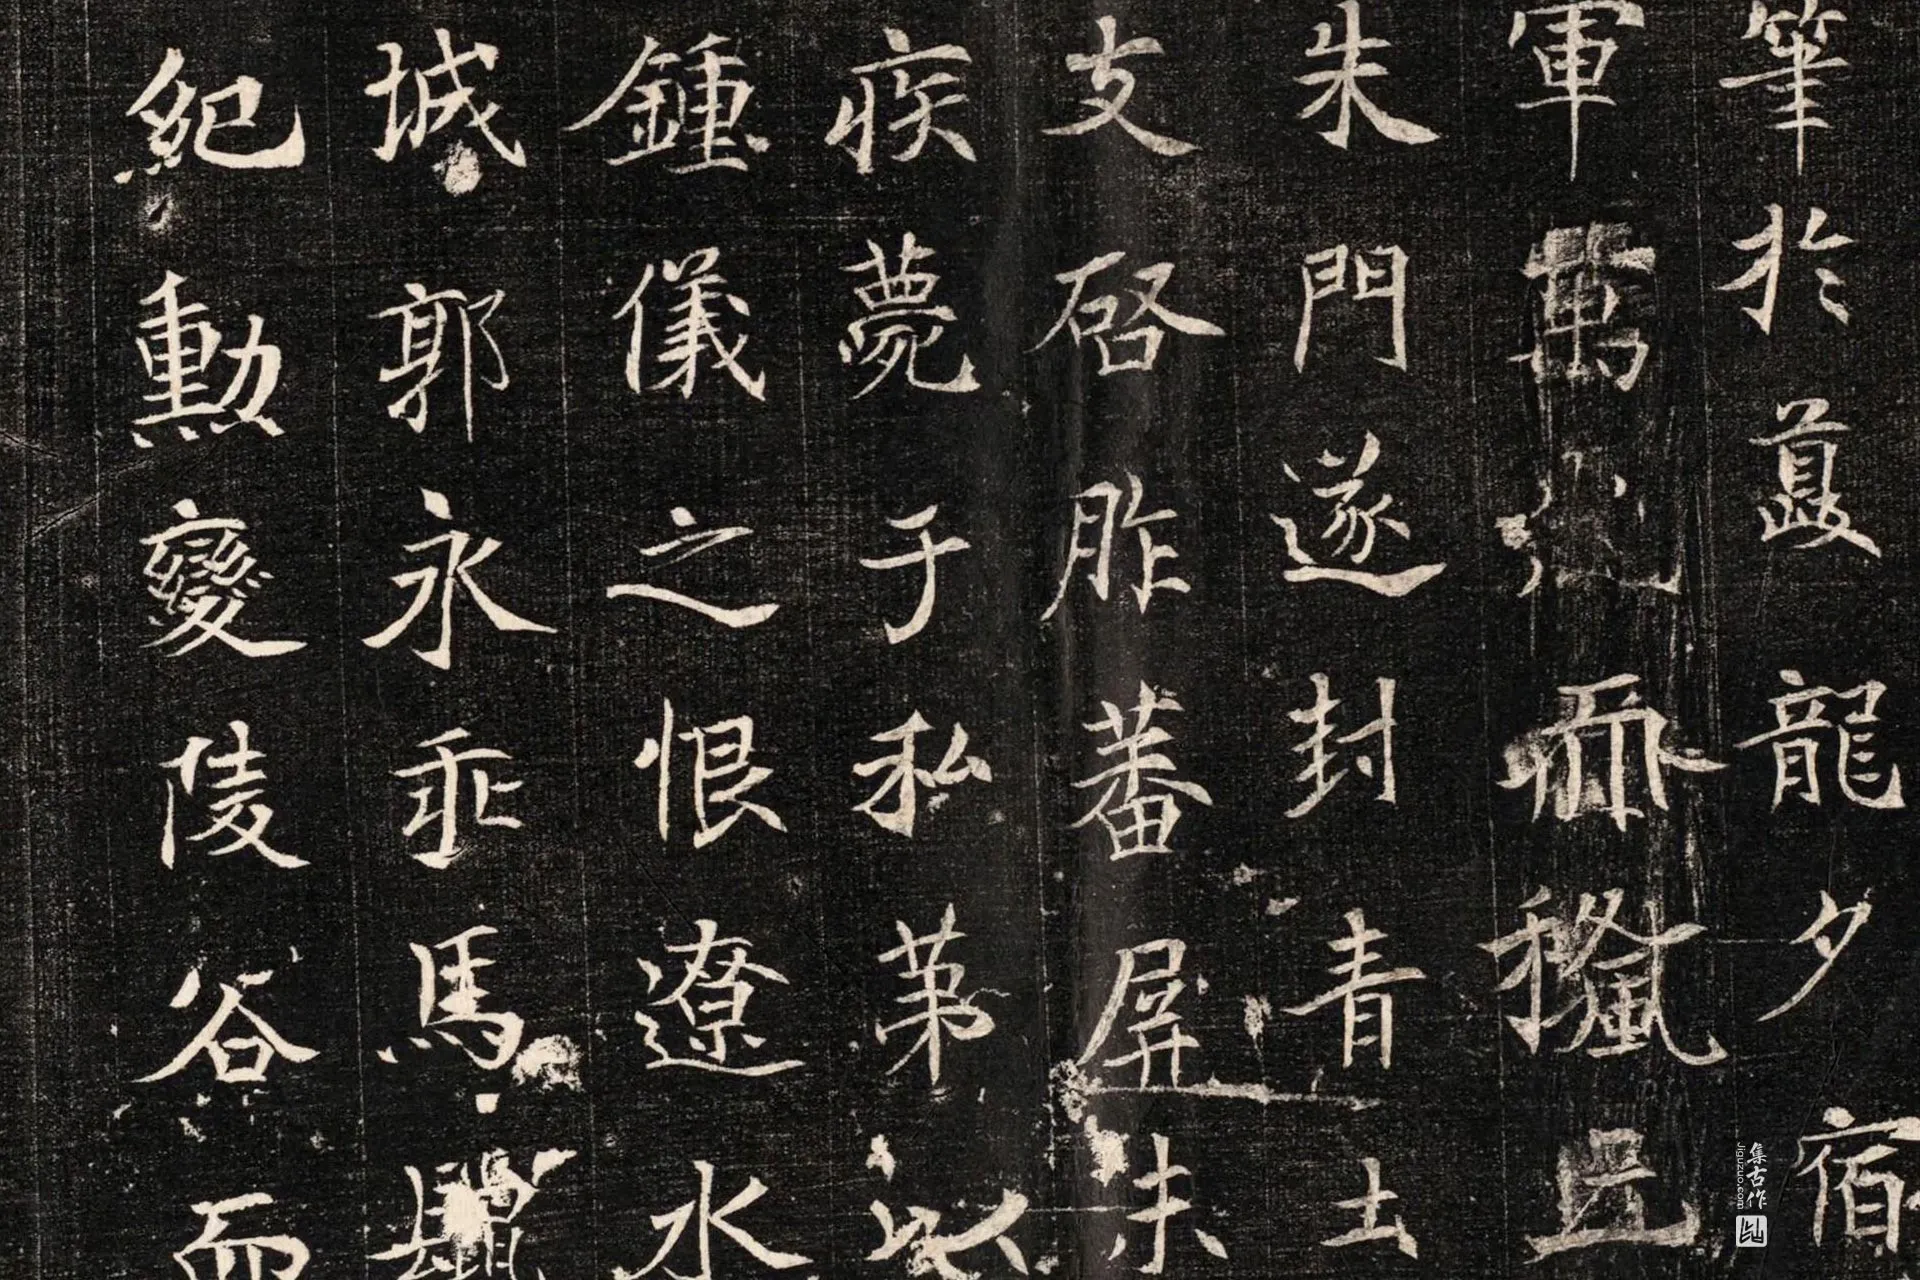 筆於夔龍夕宿
軍萬
朱門遂封青土
支啓胙蕃屏未
疾薨于私第以
鍾儀之恨遼水
城郭永乖馬鬣
紀勳變陵谷而
集古作
jiguzuo.com